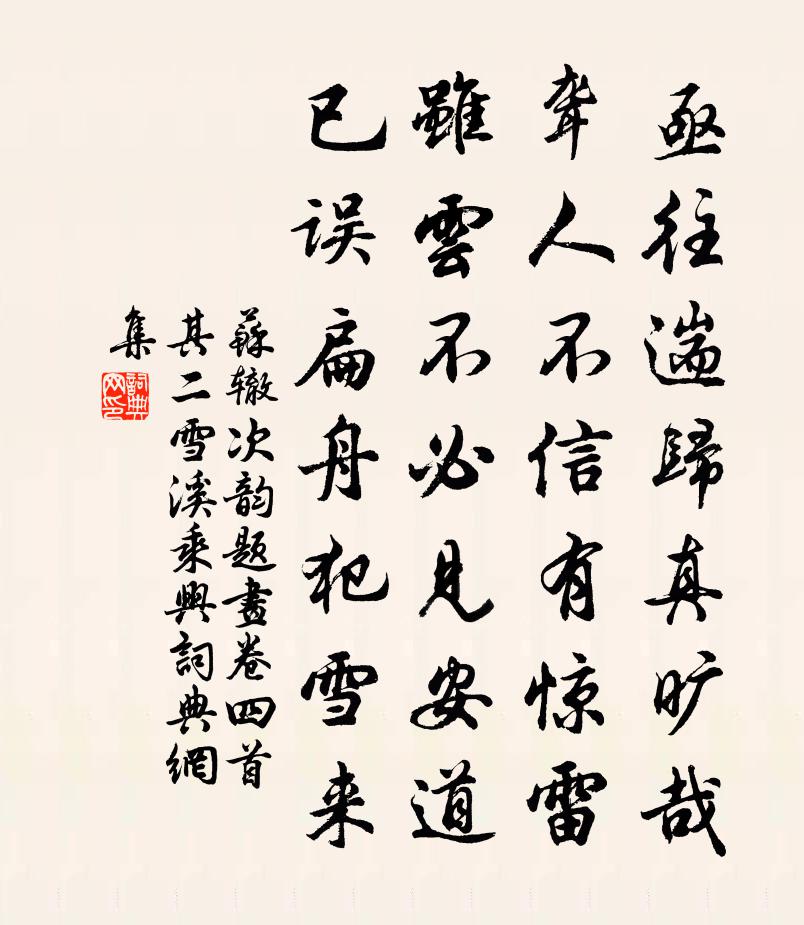 亟往遄歸真旷哉
聋人不信有惊雷
雖雲不必見安道
已误扁舟犯雪来
蘇辙次韵题畫卷四首
其二雪溪乘興詞典網
集
詞典
网印